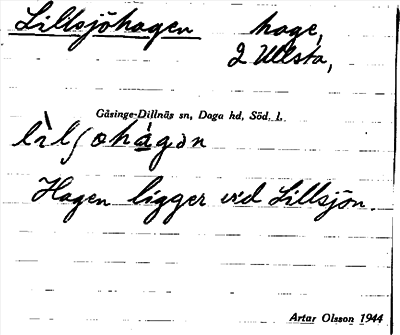 Lillsjöhagen hage,
2 Ullsta,
Gåsinge-Dillnäs sn, Daga hd, Söd. l.
Hagen ligger vid Lillsjön.
Artur Olsson 1944